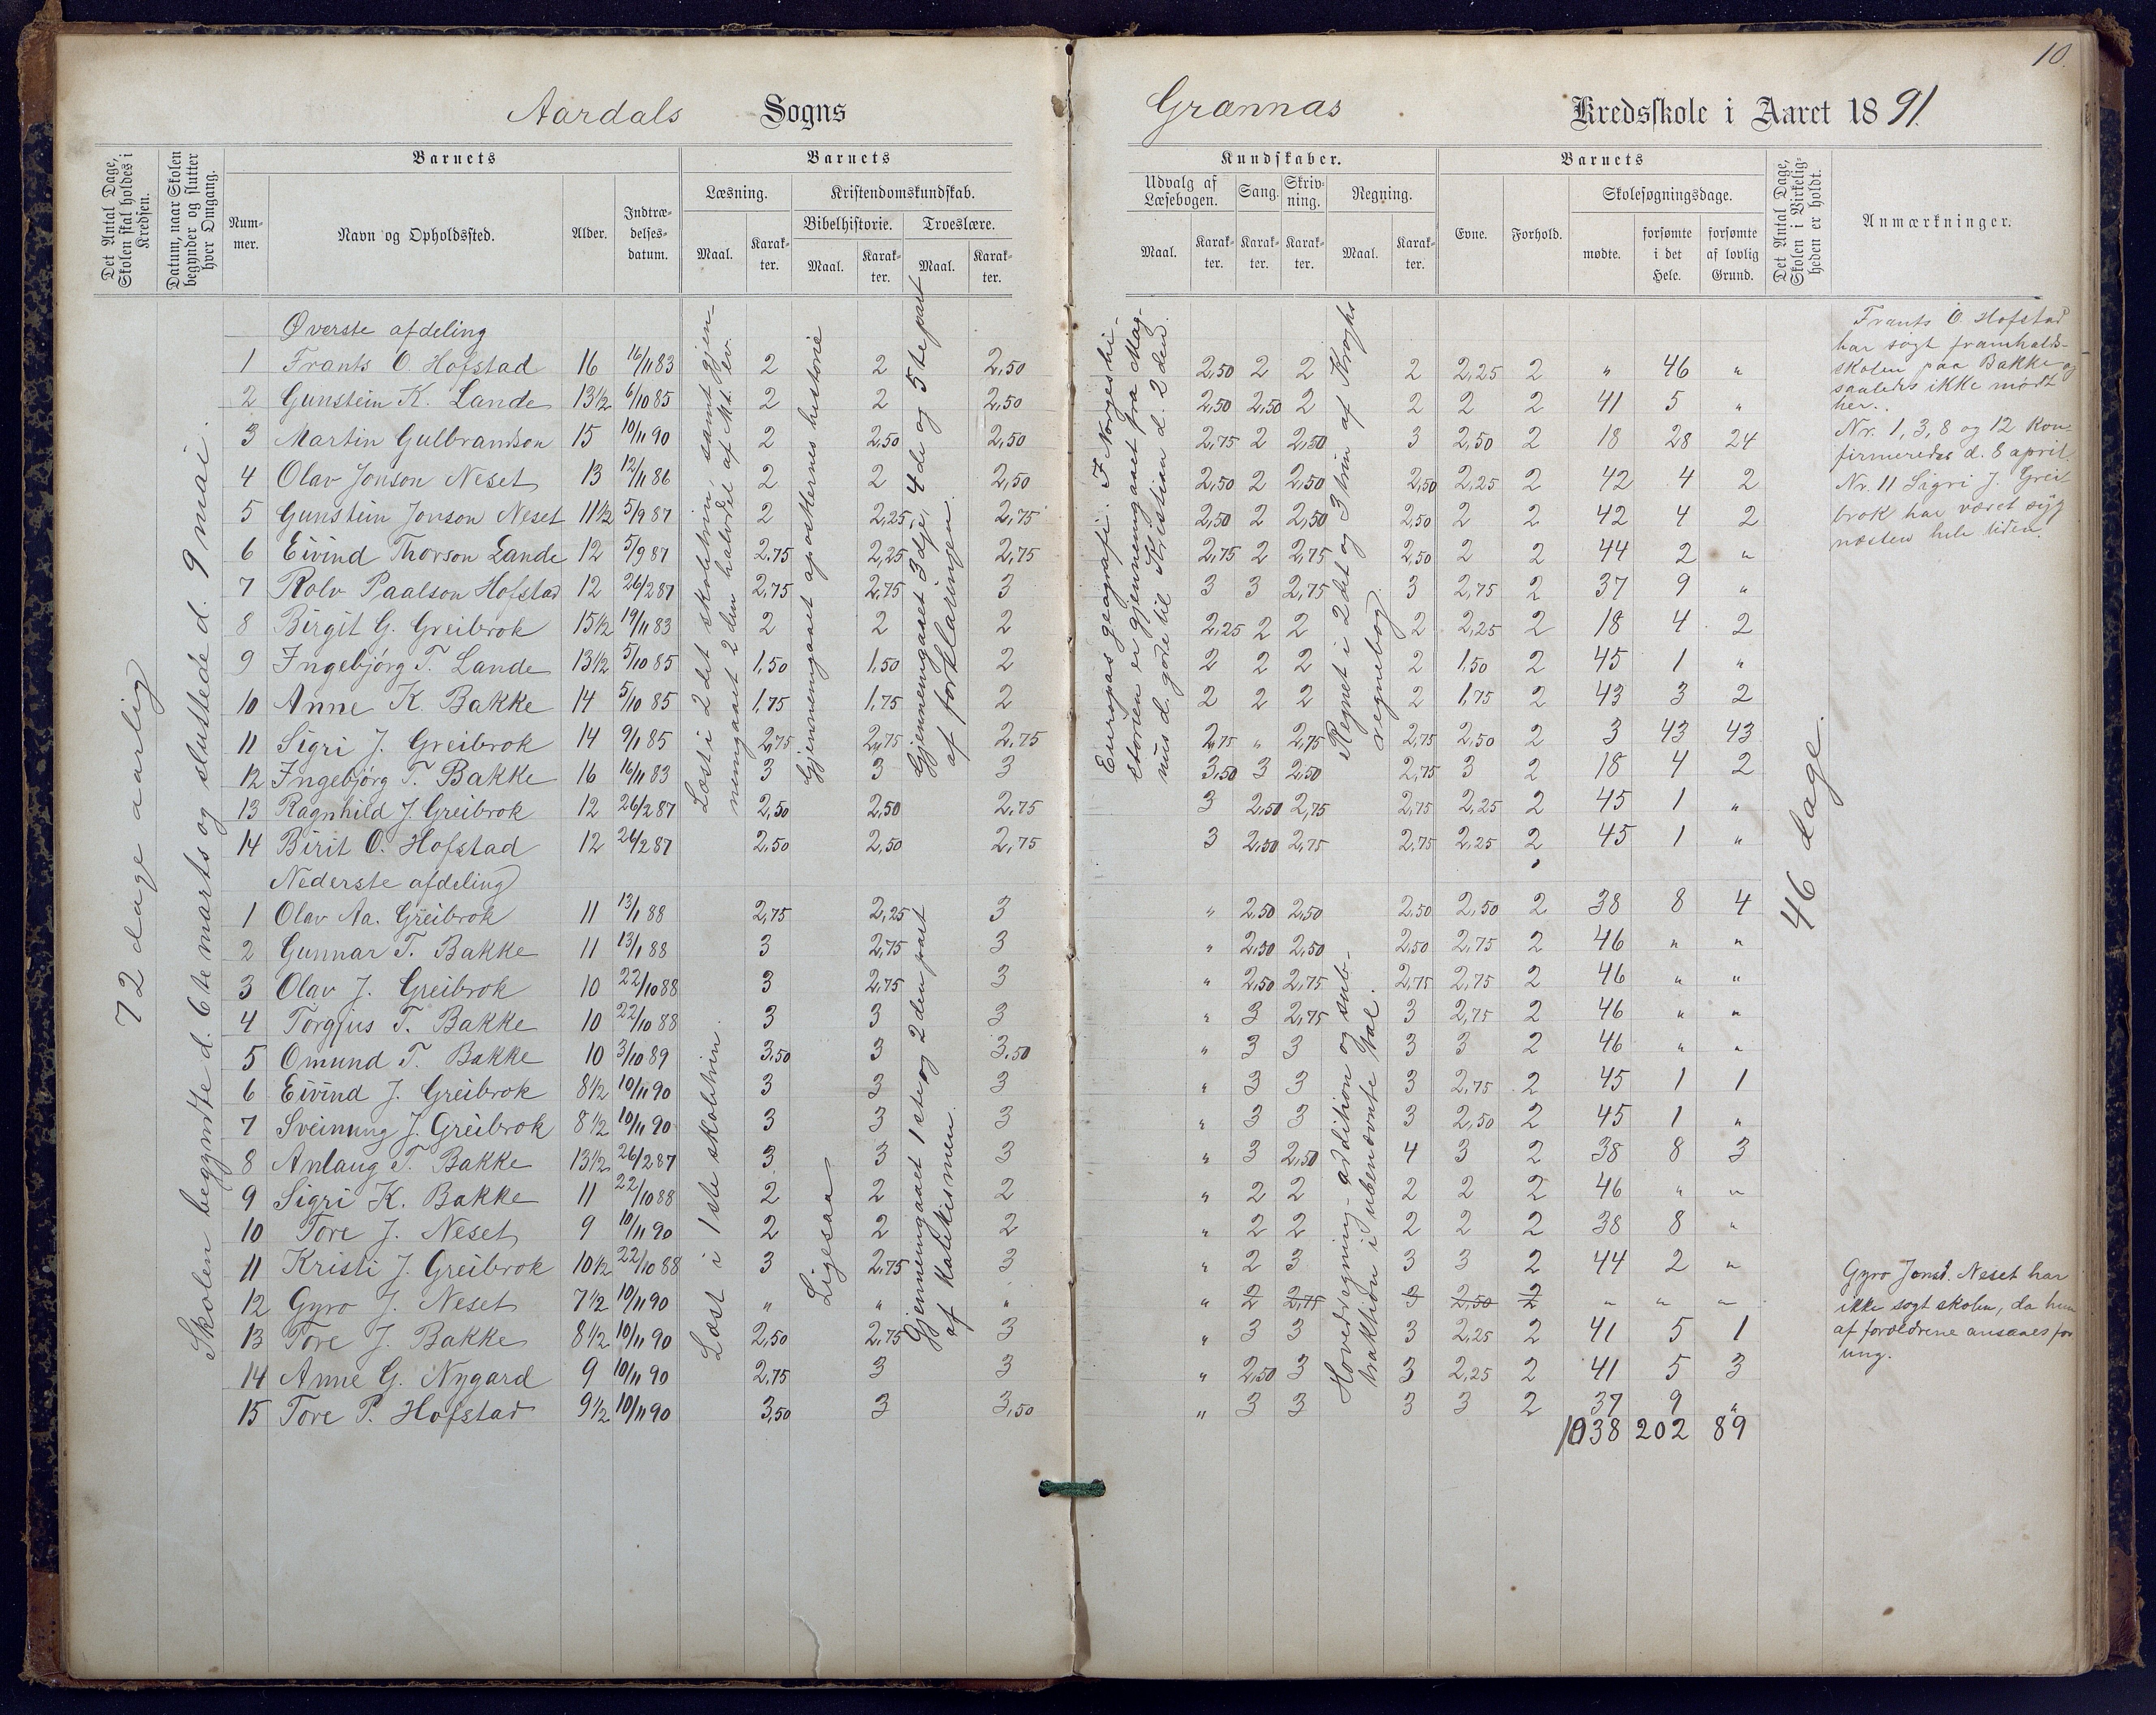 10.
Aardals Sogns
Grænnæs Kredsskole i Aaret 1891.
Det Antal Dage, Skolen skal holdes i Kredsen.
Datum, naar Skolen begynder og slutter hver Omgang.
Barnets
Nummer.
Navn og Opholdssted.
Alder.
Indtrædelsesdatum.
Barnets
Læsning.
Maal.
Karakter.
Kristendomskundskab.
Bibelhistorie.
Maal.
Karakter.
Troeslære.
Maal.
Karakter.
Kundskaber.
Udvalg af Læsebogen.
Maal.
Karakter.
Sang.
Karakter.
Skrivning.
Karakter.
Regning.
Maal.
Karakter.
Barnets
Evne.
Forhold.
Skolesøgningsdage.
mødte.
forsømte i det Hele.
forsømte af lovlig Grund.
Det Antal Dage, Skolen i Virkeligheden er holdt.
Anmærkninger.
72 dage aarlig
Skolen begyndte d. 6te marts og sluttede d. 9 mai.
Læst i 2det skoletrin, samt gjennemgaaet 2den halvdel af Mt. Ev.
Gjennemgaaet apostlernes historie
Gjennemgaaet 3dje, 4de og 5te part af forklaringen.
Europas geografi. I Norgeshistorien er gjennemgaaet fra Magnus d. gode til Kristian d. 2den.
Regnet i 2det og 3 trin af Kroghs regnebog.
46 dage.
Øverste afdeling
1 Frants O. Hofstad 16 16/11 83 2 2 2,50 2,50 2 2 2 2,25 2 " 46 "
2 Gunstein K. Lande 13½ 6/10 85 2 2 2,50 2,50 2,50 2 2 2 2 41 5 "
3 Martin Gulbrandson 15 10/11 90 2 2,50 2,50 2,75 2 2,50 3 2,50 2 18 28 24
4 Olav Jonson Neset 13 12/11 86 2 2 2,50 2,50 2 2,50 2,50 2,25 2 42 4 2
5 Gunstein Jonson Neset 11½ 5/9 87 2 2,25 2,75 2,50 2 2,50 2,50 2 2 42 4 2
6 Eivind Thorson Lande 12 5/9 87 2,75 2,25 2,75 2,75 2 2,75 2,50 2 2 44 2 "
7 Rolv Paalson Hofstad 12 26/2 87 2,75 2,75 3 3 3 2,75 3 2,75 2 37 9 "
8 Birgit G. Greibrok 15½ 19/11 83 2 2 2 2,25 2 2 2 2,25 2 18 4 2
9 Ingebjörg T. Lande 13½ 5/10 85 1,50 1,50 2 2 2 2 2 1,50 2 45 1 "
10 Anne K. Bakke 14 5/10 85 1,75 1,75 2 2 2 2 2 1,75 2 43 3 2
11 Sigri J. Greibrok 14 9/1 85 2,75 2,75 2,75 2,75 " 2,75 2,75 2,50 2 3 43 43
12 Ingebjörg T. Bakke 16 16/11 83 3 3 3 3,50 3 2,50 2,75 3 2 18 4 2
13 Ragnhild J. Greibrok 12 26/2 87 2,50 2,50 2,75 3 2,50 2,75 2,75 2,25 2 45 1 "
14 Birit O. Hofstad 12 26/2 87 2,50 2,50 2,75 3 2,50 2,75 2,75 2,25 2 45 1 "
Nederste afdeling
1 Olav Aa. Greibrok 11 13/1 88 2,75 2,25 3 " 2,50 2,50 2,50 2,50 2 38 8 4
2 Gunnar T. Bakke 11 13/1 88 3 2,75 3 " 2,50 2,50 2,50 2,75 2 46 " "
3 Olav J. Greibrok 10 22/10 88 3 2,75 3 " 2,50 2,75 2,75 2,75 2 46 " "
4 Torgjus T. Bakke 10 22/10 88 3 3 3 " 3 2,75 3 2,75 2 46 " "
5 Omund T. Bakke 10 3/10 89 3,50 3 3,50 " 3 3 3 3 2 46 " "
6 Eivind J. Greibrok 8½ 10/11 90 3 3 3 " 3 3 3 2,75 2 45 1 1
7 Sveinung J. Greibrok 8½ 10/11 90 3 3 3 " 3 3 3 2,50 2 45 1 "
8 Anlaug T. Bakke 13½ 26/2 87 3 3 3 " 3 2,50 4 3 2 38 8 3
9 Sigri K. Bakke 11 22/10 88 2 2 2 " 2 2 2 2 2 46 " "
10 Tore J. Neset 9 10/11 90 2 2 2 " 2 2 2 2 2 38 8 "
11 Kristi J. Greibrok 10½ 22/10 88 3 2,75 3 " 2 3 3 3 2 44 2 "
12 Gyro J. Neset 7½ 10/11 90 " " " " 2 2,75 3 2,50 2 " " "
13 Tore J. Bakke 8½ 10/11 90 2,50 2,75 3 " 3 3 3 2,25 2 41 5 1
14 Anne G. Nygard 9 10/11 90 2,75 3 3 " 2,50 3 3 2,25 2 41 5 3
15 Tore P. Hofstad 9½ 10/11 90 3,50 3 3,50 " 3 3 3 3 2 37 9 "
1038 202 89
Læst i 1ste skoletrin.
Ligesaa
Gjennemgaaet 1ste og 2den part af katekismen.
Hovedregning - addition og subtraktion i ubenævnte tal.
Frants O. Hofstad
har søgt framhalds-
skolen paa Bakke og
saaledes ikke mødt
her.
Nr. 1, 3, 8 og 12 kon-
firmeredes d. 8 april.
Nr. 11 Sigri J. Grei-
brok har været syg
næsten hele tiden.
Gyro Jonsd. Neset har
ikke søgt skolen, da hun
af forældrene ansaaes for
ung.